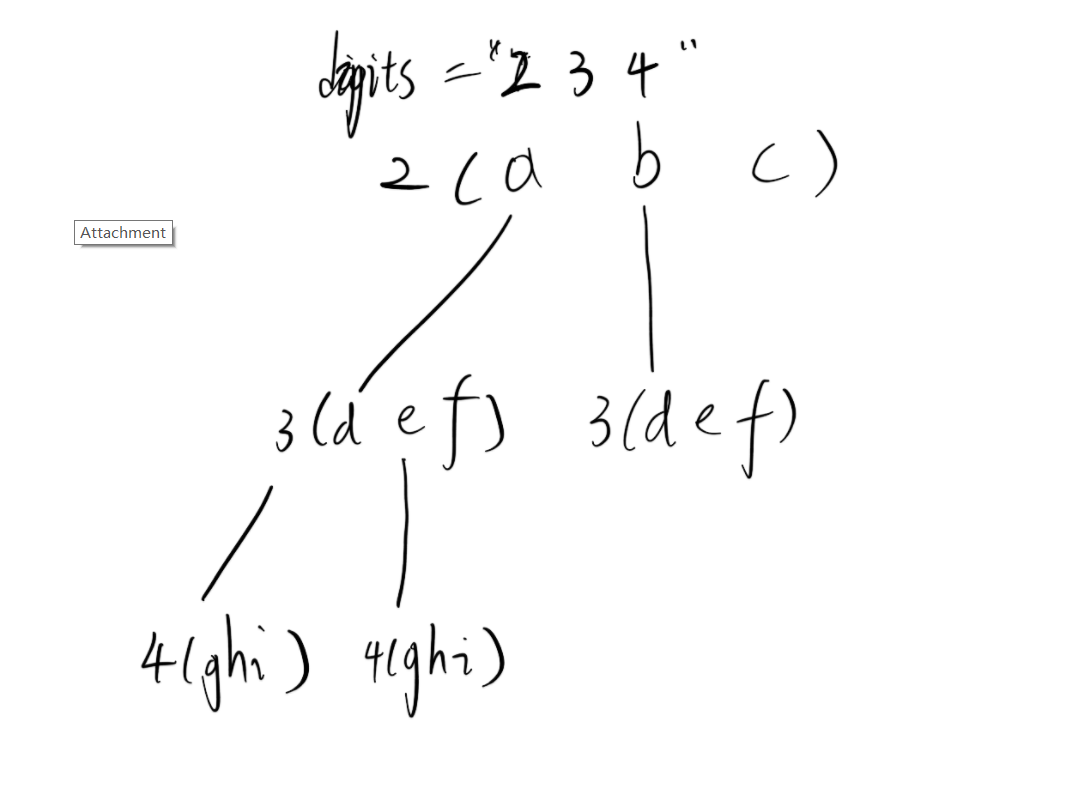 digits = "2 3 4"
2 ( a b c )
Attachment
3(d e f) 3(d e f)
4(ghi) 4(ghi)